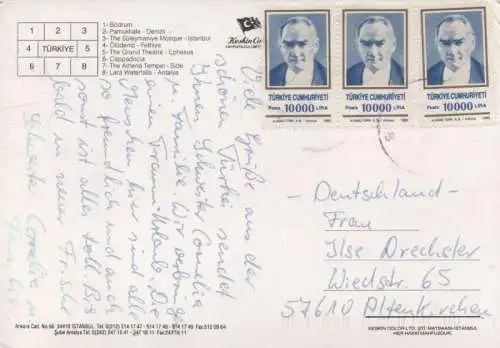 1 2 3
4 TÜRKİYE 5
6 7 8
1- Bodrum
2- Pamukkale - Denizli -
3- The Süleymaniye Mosque - İstanbul
4- Ölüdeniz - Fethiye
5- The Grand Theatre - Ephesus
6- Cappadocia
7- The Athena Tempel - Side
8- Lara Waterfalls - Antalya
Keskin Color
TÜRKİYE CUMHURİYETİ
Posta 10000 LİRA
TÜRKİYE CUMHURİYETİ
Posta 10000 LİRA
TÜRKİYE CUMHURİYETİ
Posta 10000 LİRA
Viele Grüße aus der
schönen Türkei sendet
Ihnen Schwester Cornelia
u. Familie. Wir verbringen
einen Traumurlaub. Die
Menschen hier sind alle
so freundlich und auch
sonst ist alles toll. Bis
bald in neuer Frische
Schwester Cornelia u.
Deutschland -
Frau
Ilse Drechsler
Wiedstr. 65
57610 Altenkirchen
Ankara Cad. No.98 34410 İSTANBUL Tel: 0(212) 514 17 47 - 514 17 48 - 514 17 49 Fax: 512 09 64
KESKİN COLOR LTD. ŞTİ. MATBAASI-İSTANBUL
HER HAKKI MAHFUZDUR